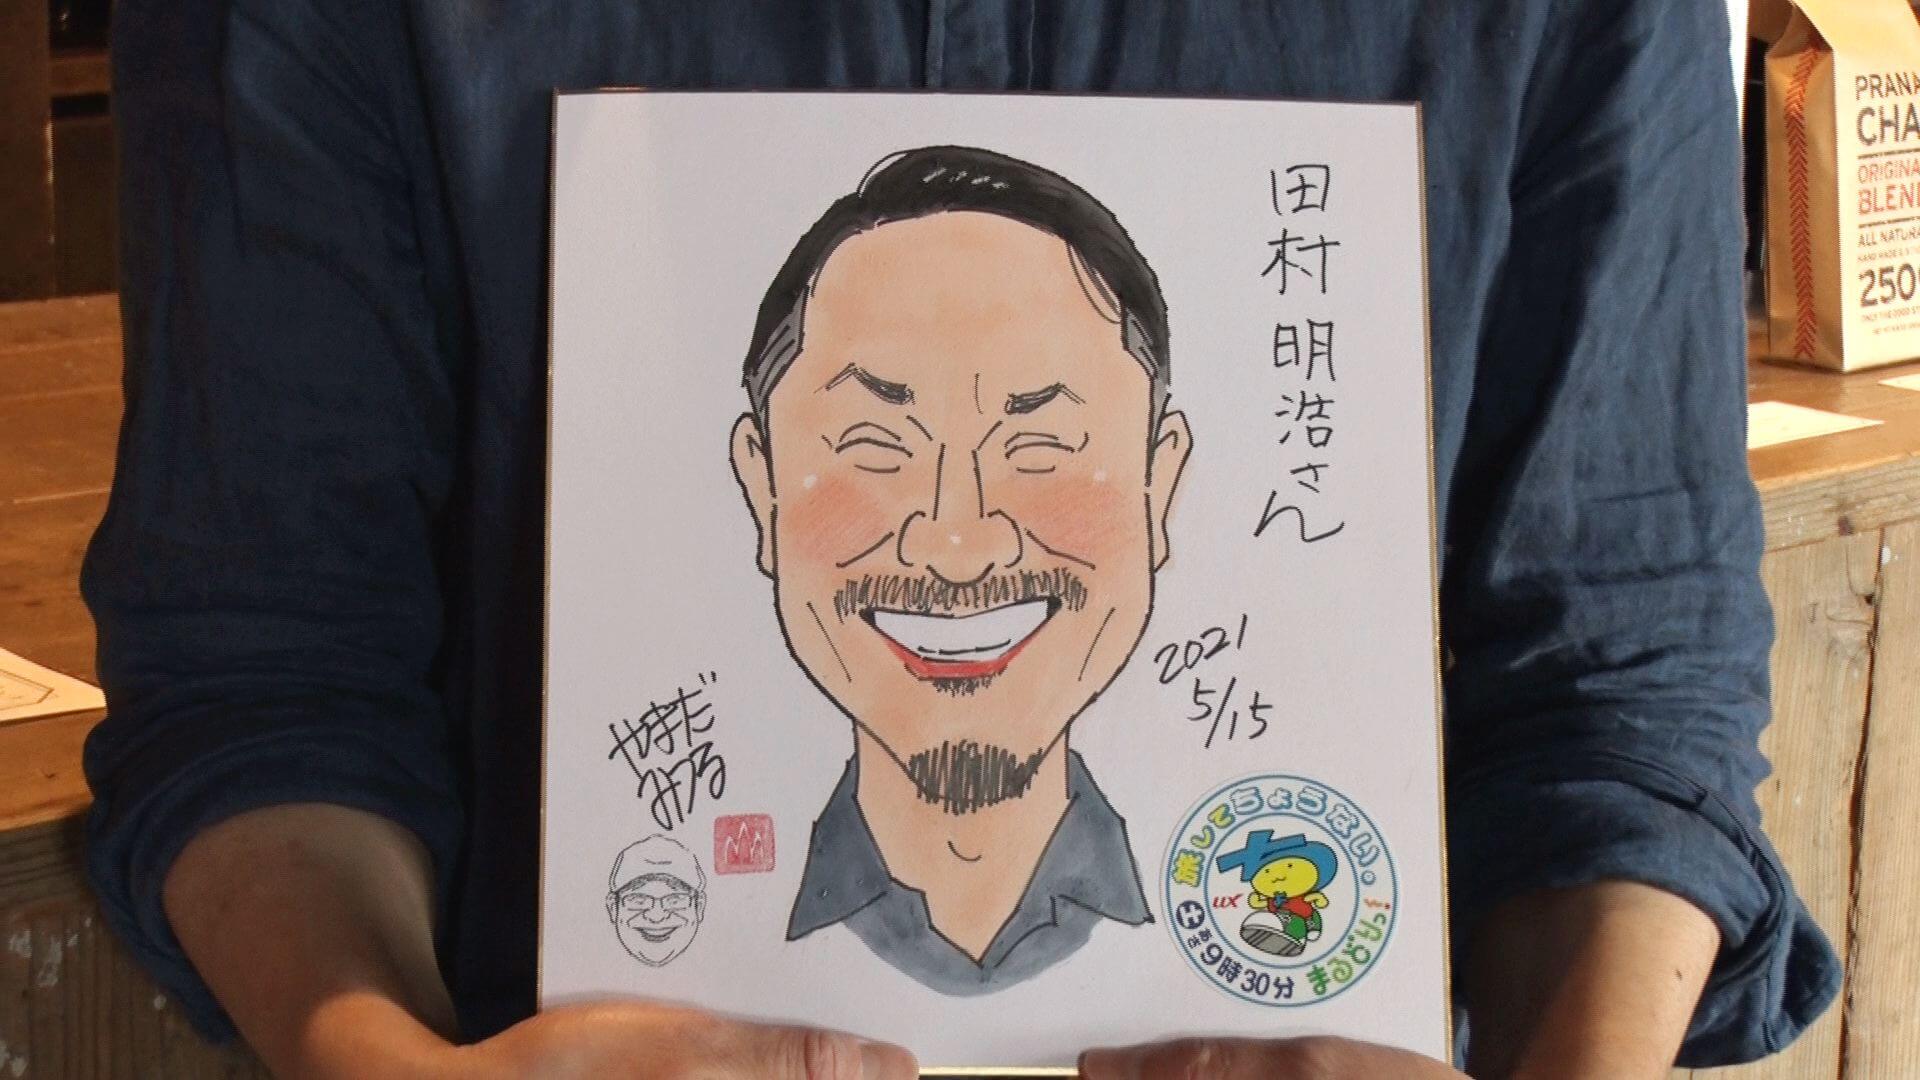 田村明浩さん
2021
5/15
やまだ
みつる
旅してちょうない。
まるどりっ!
UX
土あさ9時30分
PRANA
CHA
ORIGINA
BLEN
ALL NATURA
250